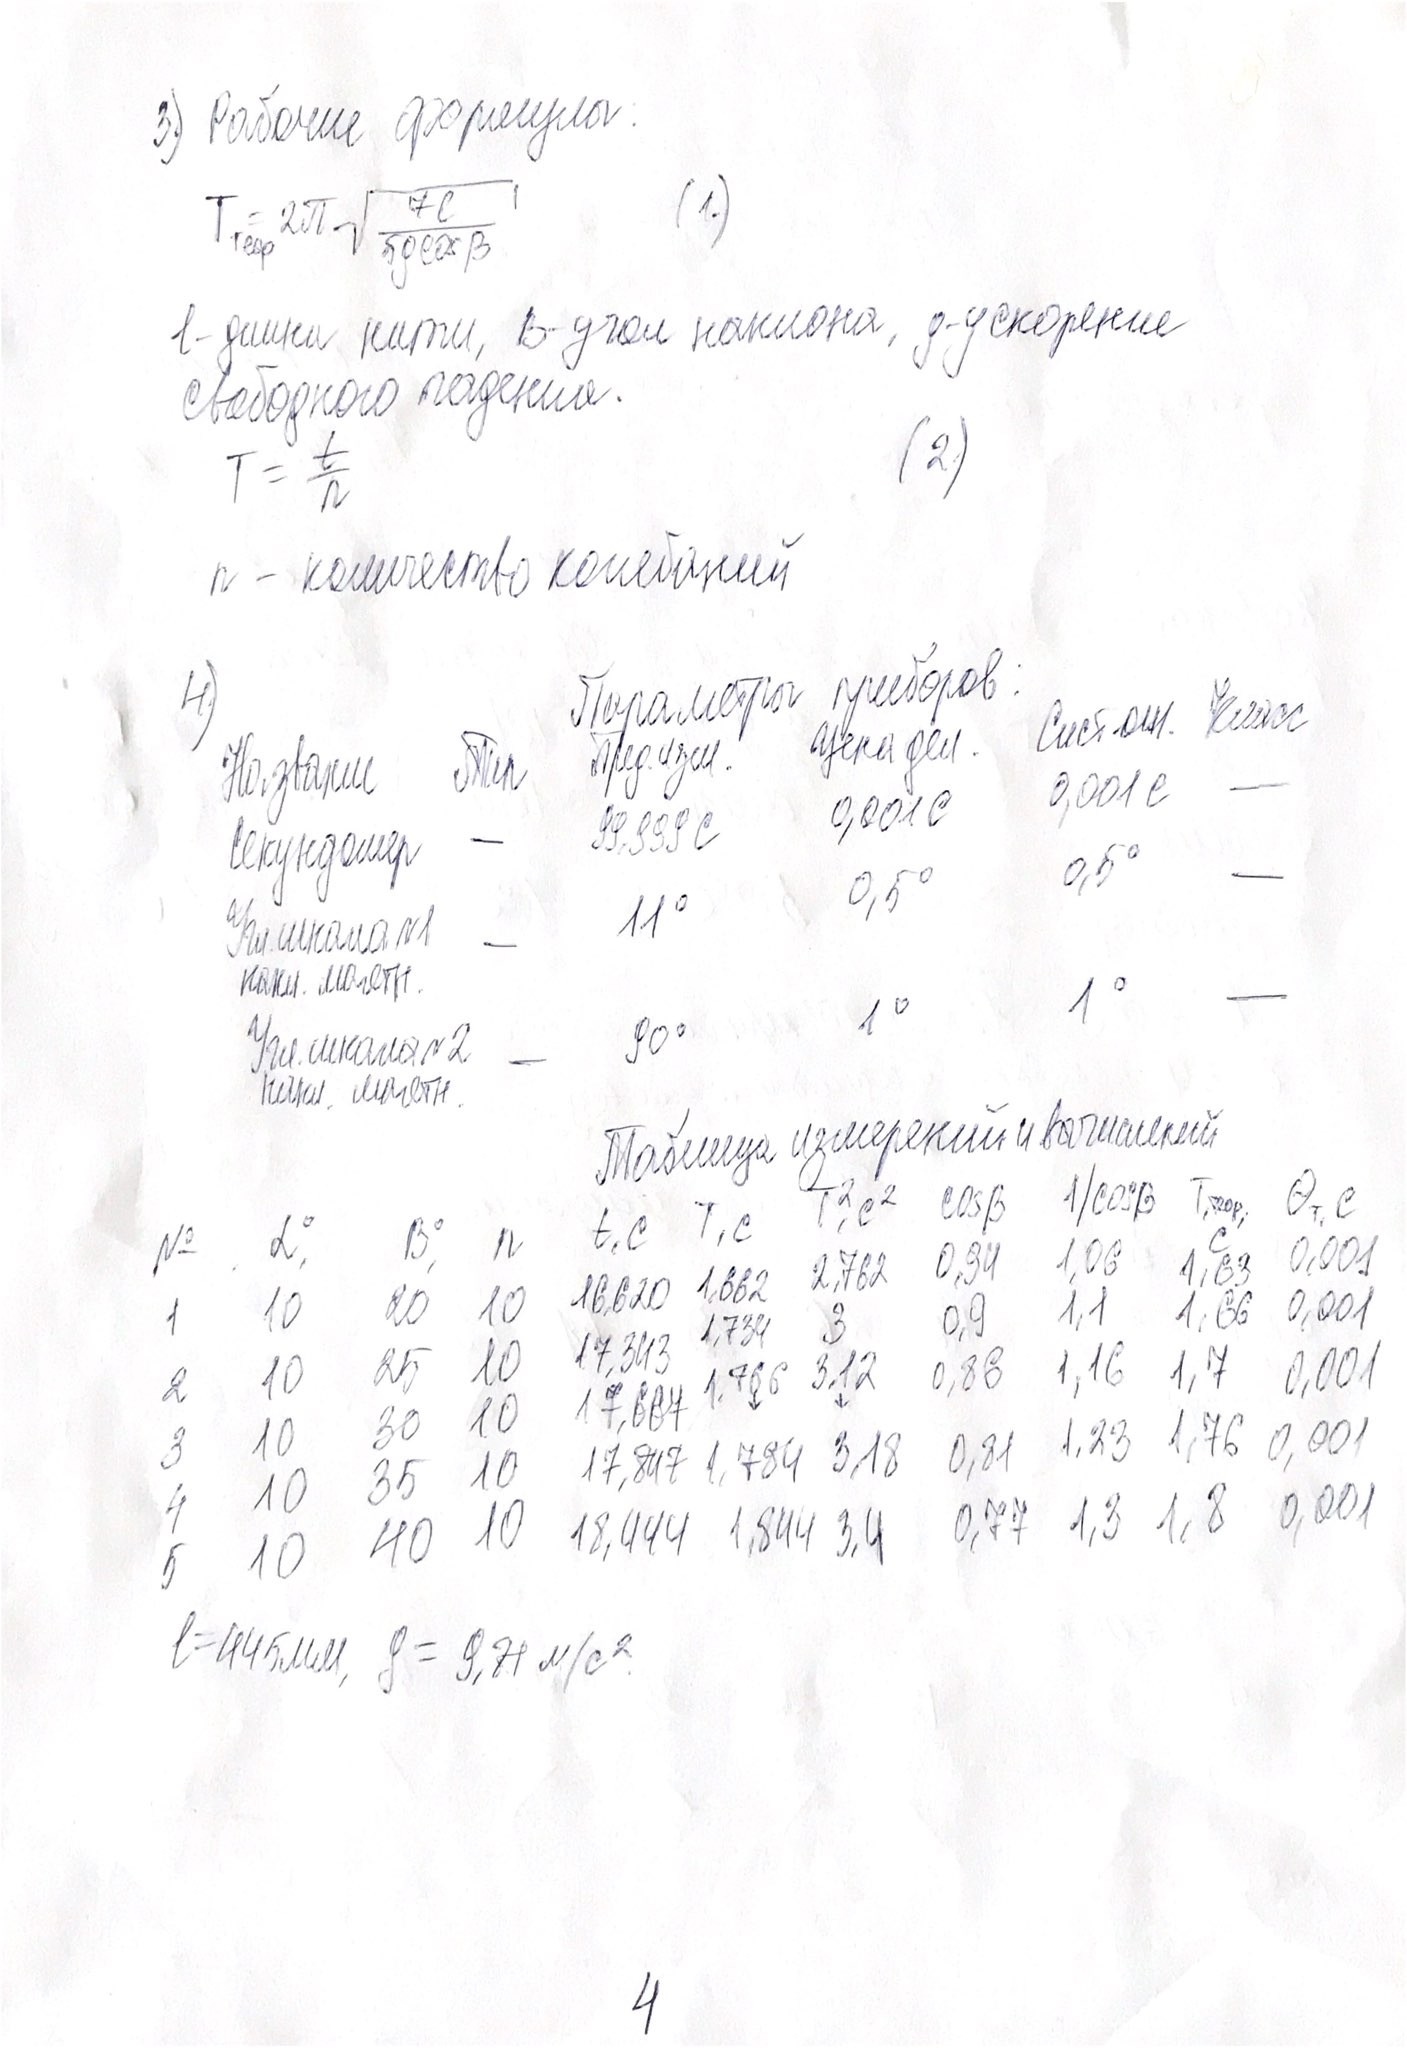 3) Рабочие формулы:
Tтеор = 2π √(7l / 5gcosβ) (1.)
l - длина нити, β - угол наклона, g - ускорение
свободного падения.
T = t/n (2)
n - количество колебаний
4) Параметры приборов:
Название Тип Пред.изм. Цена дел. Сист.ош. Класс
Секундомер — 99,999 с 0,001 с 0,001 с —
Угл.шкала №1 — 11° 0,5° 0,5° —
накл. маятн.
Угл.шкала №2 — 90° 1° 1° —
накл. маятн.
Таблица измерений и вычислений
№ α,° β,° n t, c T, c T², c² cosβ 1/cosβ Tтеор, c θт, c
1 10 20 10 16,620 1,662 2,762 0,94 1,06 1,63 0,001
2 10 25 10 17,343 1,734 3 0,9 1,1 1,66 0,001
3 10 30 10 17,667 1,766 3,12 0,86 1,16 1,7 0,001
4 10 35 10 17,847 1,784 3,18 0,81 1,23 1,76 0,001
5 10 40 10 18,444 1,844 3,4 0,77 1,3 1,8 0,001
l = 445мм, g = м/с²
4